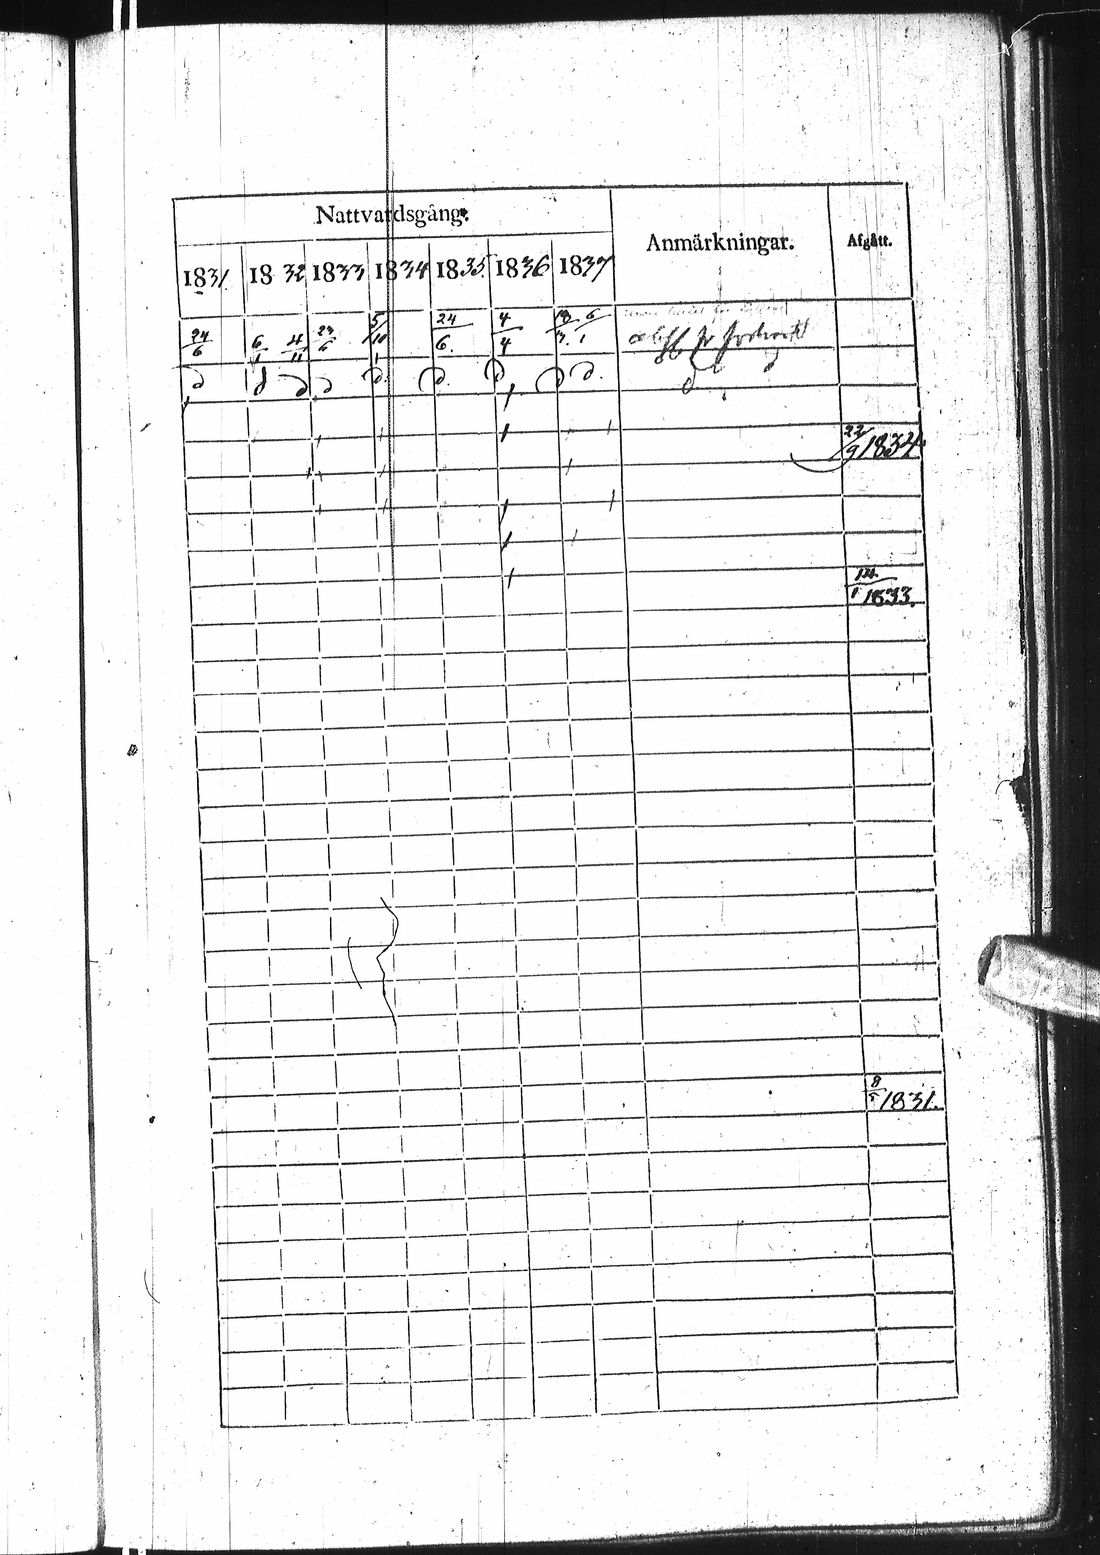 Nattvardsgång.
Anmärkningar.
Afgått.
1831. 1832 1833 1834 1835. 1836 1837
24/6 6/1 4/11 23/6 5/10 24/6. 4/4 18/3. 6/1
d d d d d. d. d d d. d
22/9 1834
14/1 1833.
8/5 1831.